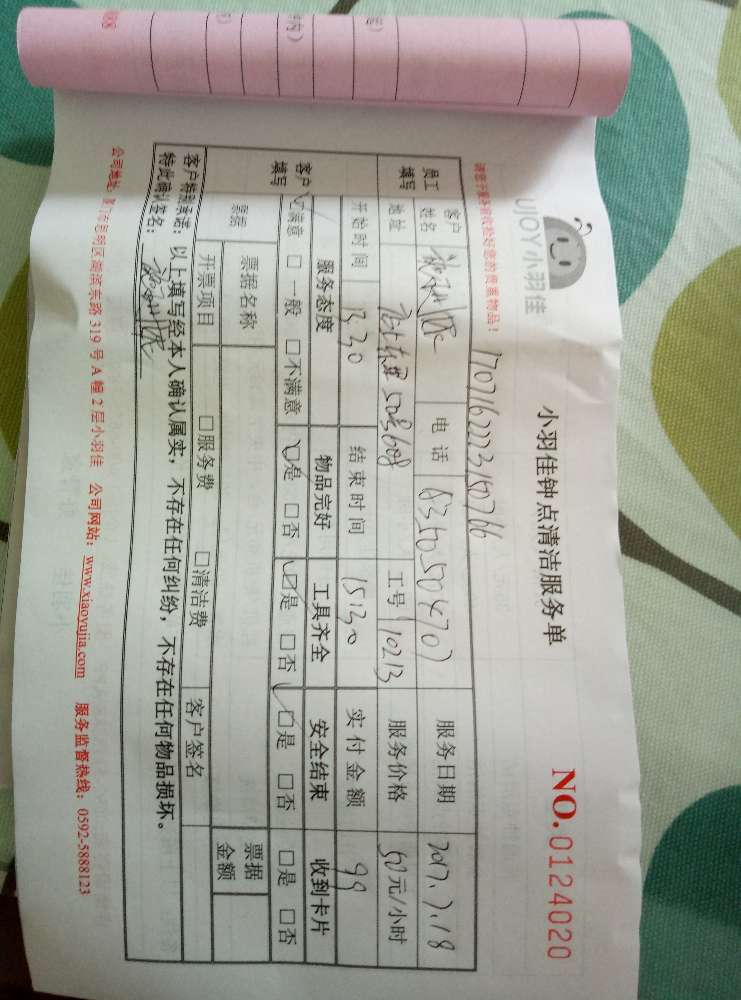 UJOY小羽佳
小羽佳钟点清洁服务单
NO.0124020
请您于服务前代检好您的贵重物品!
员工填写
客户姓名
电话
服务日期 2017.7.18
地址
工号 10213
服务价格 50元/小时
开始时间 13:30
结束时间 15:30
实付金额 99
客户填写
服务态度 物品完好 工具齐全 安全结束 收到卡片
□满意 □一般 □不满意 □是 □否 □是 □否 □是 □否 □是 □否
票据
票据名称
票据金额
开票项目 □服务费 □清洁费 客户签名
客户特别承诺:以上填写经本人确认属实,不存在任何纠纷,不存在任何物品损坏。
特此确认签名:
公司地址:厦门市思明区湖滨东路319号A幢2层小羽佳 公司网站:www.xiaoyujia.com 服务监督热线:0592-5888123